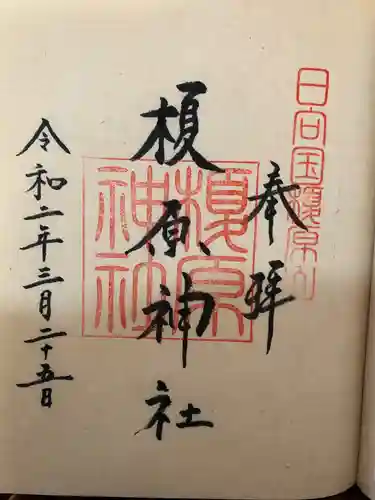 日向国榎原山
奉拝
榎原神社
榎原
神社
令和二年三月二十五日